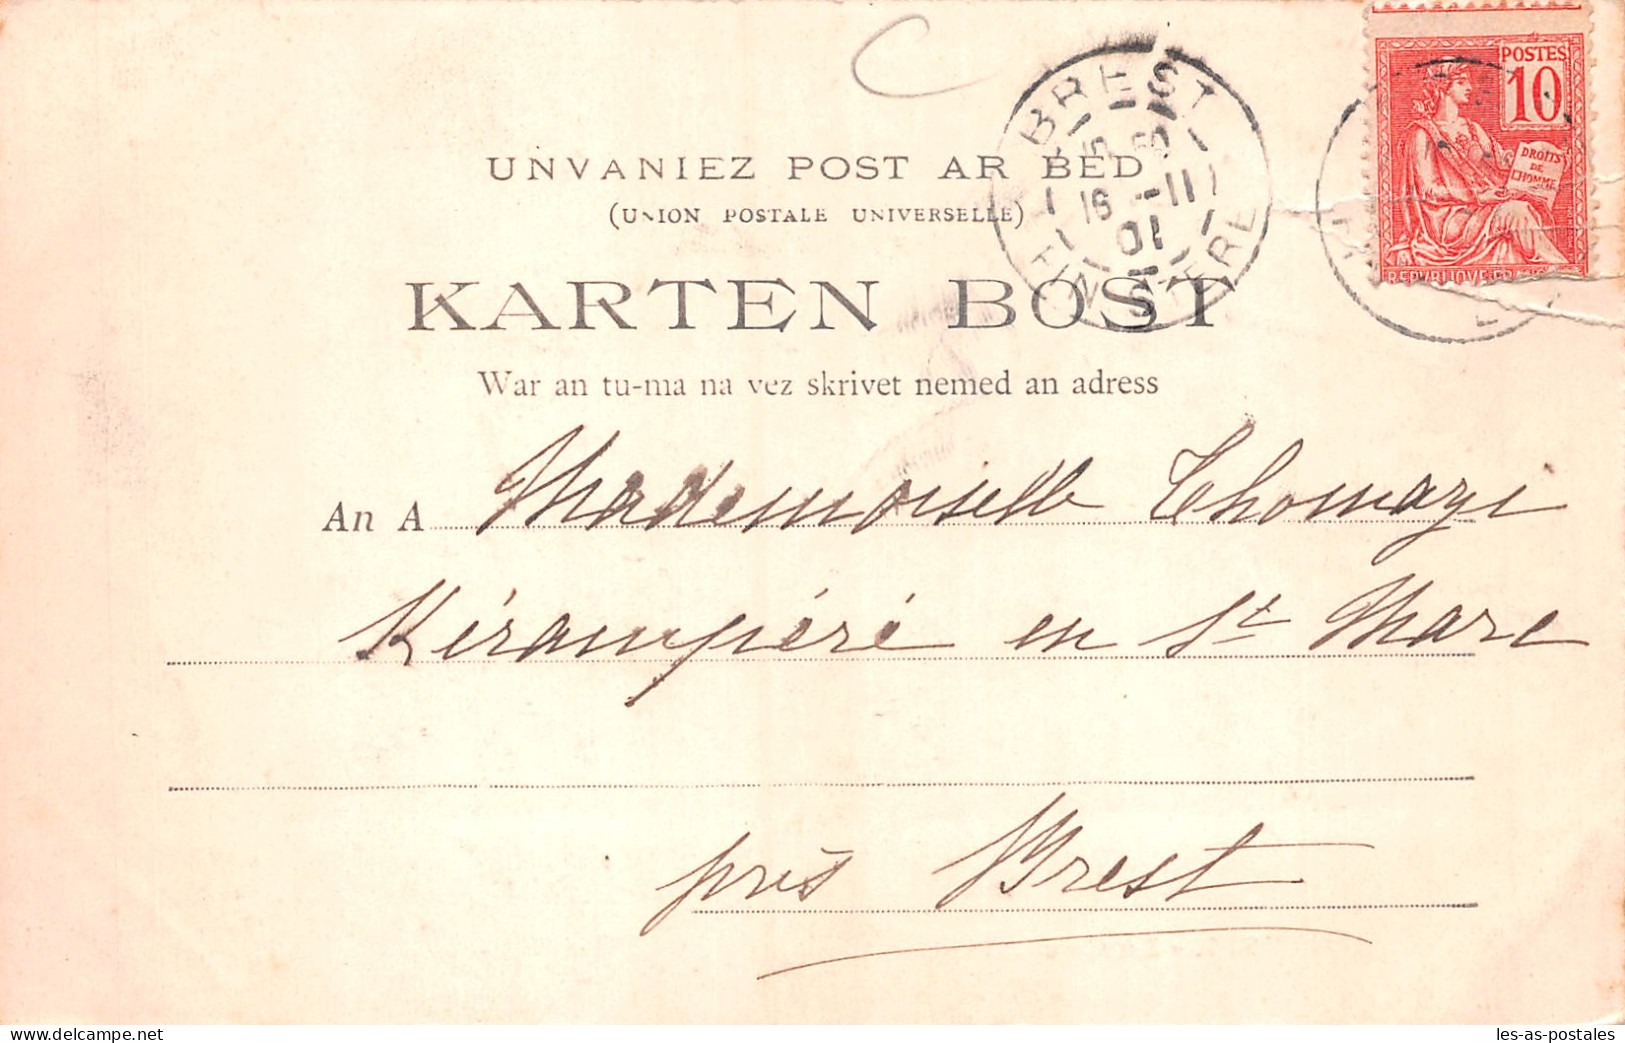 UNVANIEZ POST AR BED
(UNION POSTALE UNIVERSELLE)
KARTEN BOST
War an tu-ma na vez skrivet nemed an adress
An A Mademoiselle Thomazi
Kérampéré en St Marc
près Brest
BREST
16 -11
01
FINISTERE
POSTES
10
DROITS
DE
L'HOMME
REPUBLIQUE FRANC
les-as-postales
delcampe.net